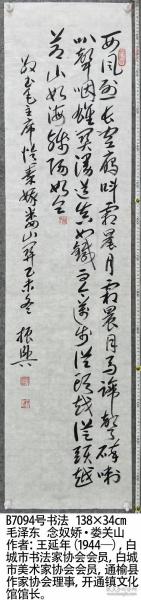 西风烈长空雁叫霜晨月霜晨月马蹄声碎喇
叭声咽雄关漫道真如铁而今迈步从头越从头越
苍山如海残阳如血
敬书毛主席忆秦娥娄山关乙未冬
B7094号书法 138×34cm
毛泽东 念奴娇·娄关山
作者：王延年(1944—)，白
城市书法家协会会员，白城
市美术家协会会员，通榆县
作家协会理事，开通镇文化
馆馆长。